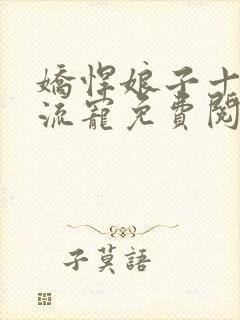 嬌悍娘子十
流寵免費閱
子莫語